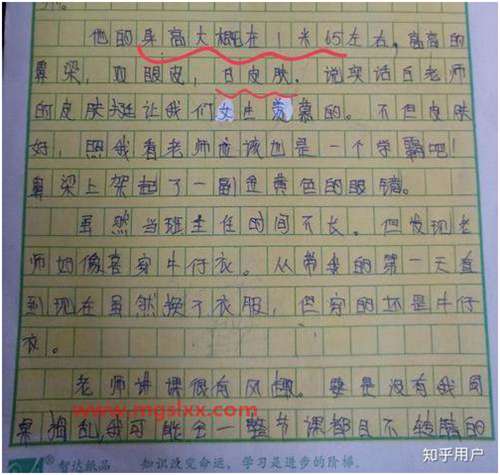 他的身高大概在1米65左右，高高的
鼻梁，双眼皮，白皮肤。说实话丘老师
的皮肤挺让我们女生羡慕的。不但皮肤
好，照我看老师应该也是一个学霸吧！
鼻梁上架起了一副金黄色的眼镜。
虽然当班主任时间不长，但发现老
师好像喜穿牛仔衣。从带我的第一天直
到现在虽然换了衣服，但穿的还是牛仔
衣。
老师讲课很有风趣。要是没有我同
桌捣乱，我可能会一整节课都目不转睛的
www.mgslxx.com
智达纸品 知识改变命运，学习是进步的阶梯。
知乎用户